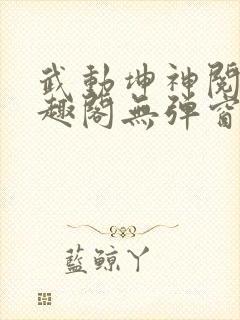 武動坤神閱
趣閣無彈窗
藍鯨丫